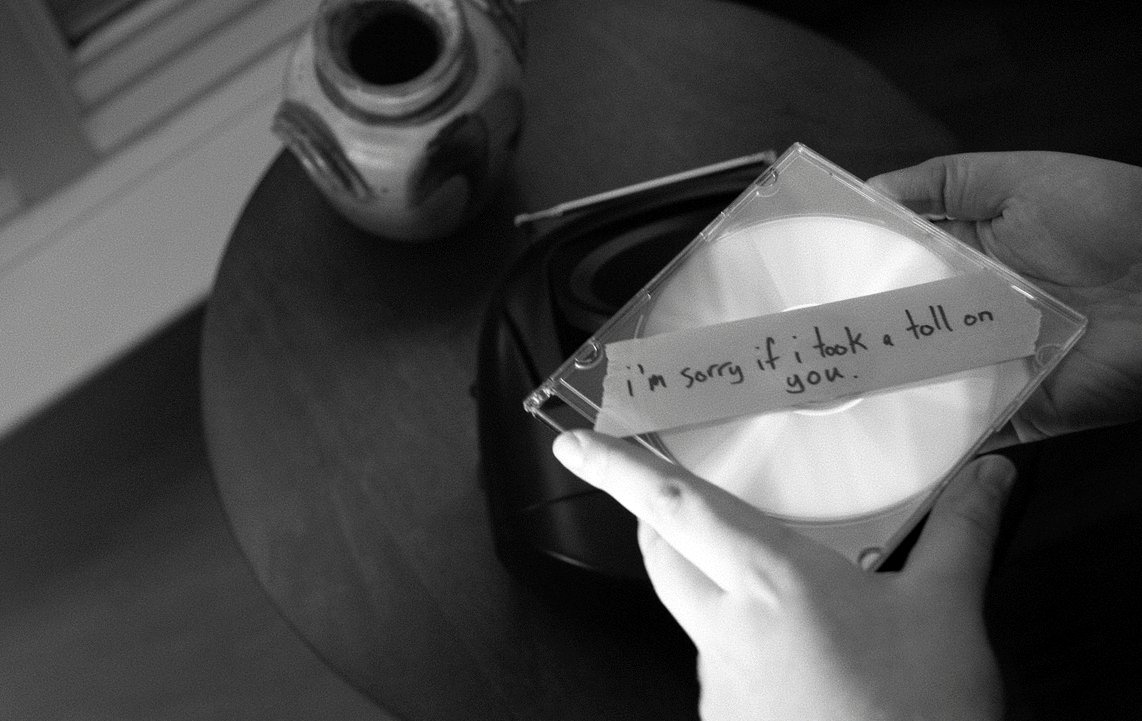 i'm sorry if i took a toll on
you.